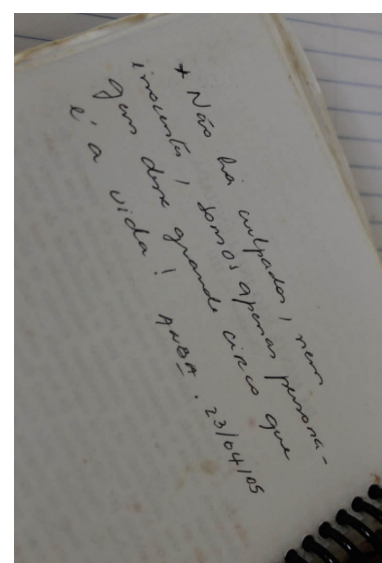 * Não há culpados, nem
inocentes! Somos apenas persona-
gens desse grande circo que
é a vida! ANBA. 23/04/05